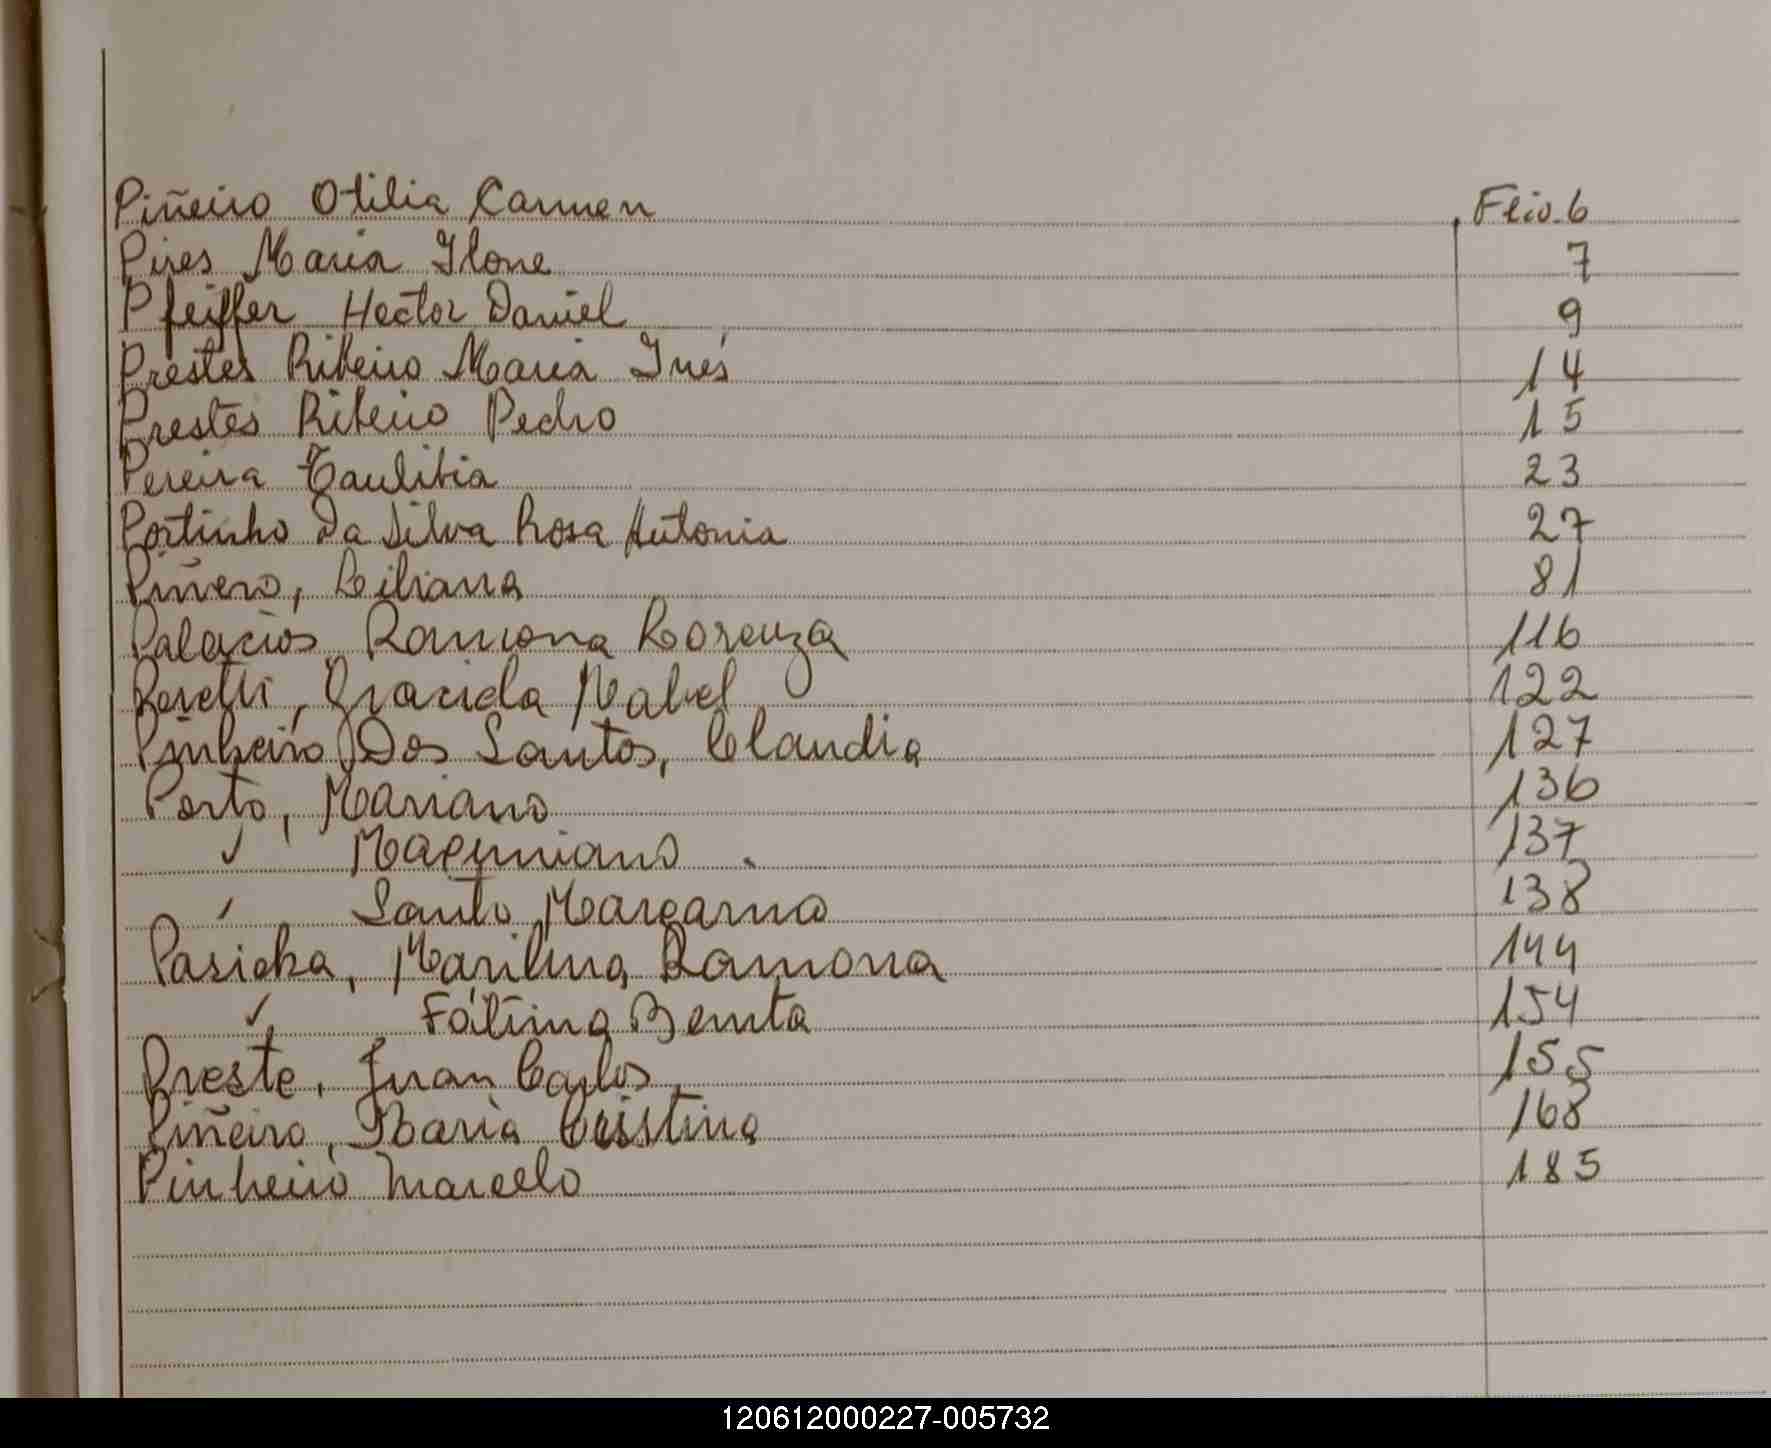 Piñeiro Otilia Carmen Flio. 6
Pires Maria Ilone 7
Pfeiffer Hector Daniel 9
Prestes Ribeiro Maria Inés 14
Prestes Ribeiro Pedro 15
Pereira 23
Portinho Da Silva Rosa Antonia 27
Piñero, Liliana 81
Palacios Ramona Lorenza 116
Peretti, Graciela Mabel 122
Pinheiro Dos Santos, Claudia 127
Porto, Mariano 136
" 137
" Santo 138
Pasicka, Marilina Ramona 144
" Fátima Benita 154
Preste, Juan Carlos 155
Piñeiro, Maria Cristina 168
Pinheiro Marcelo 185
120612000227-005732